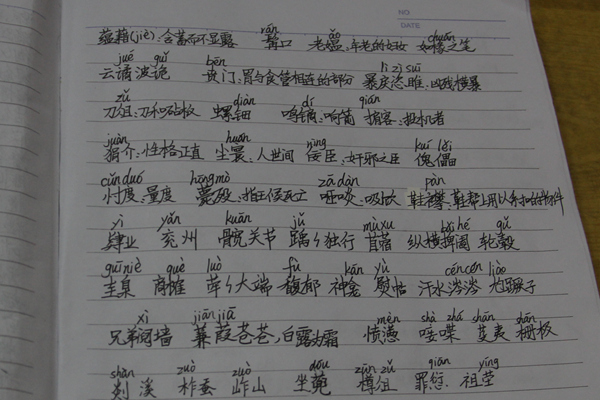 NO
DATE
蕴藉(jiè):含蓄而不显露 髯口 老媪:年老的妇女 如椽之笔
rán ǎo chuán
云谲波诡 贲门:胃与食管相连的部分 暴戾恣睢:凶残横暴
jué guǐ bēn lì zì suī
刀俎:刀和砧板 螺钿 鸣镝:响箭 掮客:投机者
zǔ diàn dí qián
狷介:性格正直 尘寰:人世间 佞臣:奸邪之臣 傀儡
juàn huán nìng kuǐ lěi
忖度:量度 薨殁:指王侯死亡 咂啖:吸吮 鞋襻:鞋帮上用以系扣的物件
cǔn duó hōng mò zā dàn pàn
肄业 兖州 髋关节 踽々独行 苜蓿 纵横捭阖 轮毂
yì yǎn kuān jǔ mù xu bǎi hé gǔ
圭臬 商榷 荦々大端 馥郁 神龛 熨帖 汗水涔涔 尥蹶子
guī niè què luò fù kān yù cén cén liào
兄弟阋墙 蒹葭苍苍,白露为霜 愤懑 唼喋 芟夷 栅极
xì jiān jiā mèn shà zhá shān shān
剡溪 柞蚕 岞山 坐蔸 樽俎 罪愆 祖茔
shàn zuò zuò dōu zūn zǔ qiān yíng